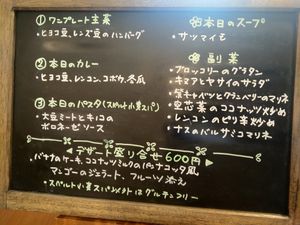 ① ワンプレート主菜
・ヒヨコ豆、レンズ豆のハンバーグ
② 本日のカレー
・ヒヨコ豆、レンコン、ゴボウ、冬瓜
③ 本日のパスタ(スペルト小麦スパ)
・大豆ミートとキノコの
ボロネーゼソース
本日のスープ
・サツマイモ
副菜
・ブロッコリーのグラタン
・キヌアとヤサイのサラダ
・紫キャベツとクランベリーのマリネ
・空芯菜のココナッツ炒め
・レンコンのピリ辛炒め
・ナスのバルサミコマリネ
◀ デザート盛り合せ 600円 ▶
・バナナのケーキ、ココナッツミルクのパンナコッタ風
マンゴーのジェラート、フルーツ添え
・スペルト小麦スパ以外はグルテンフリー